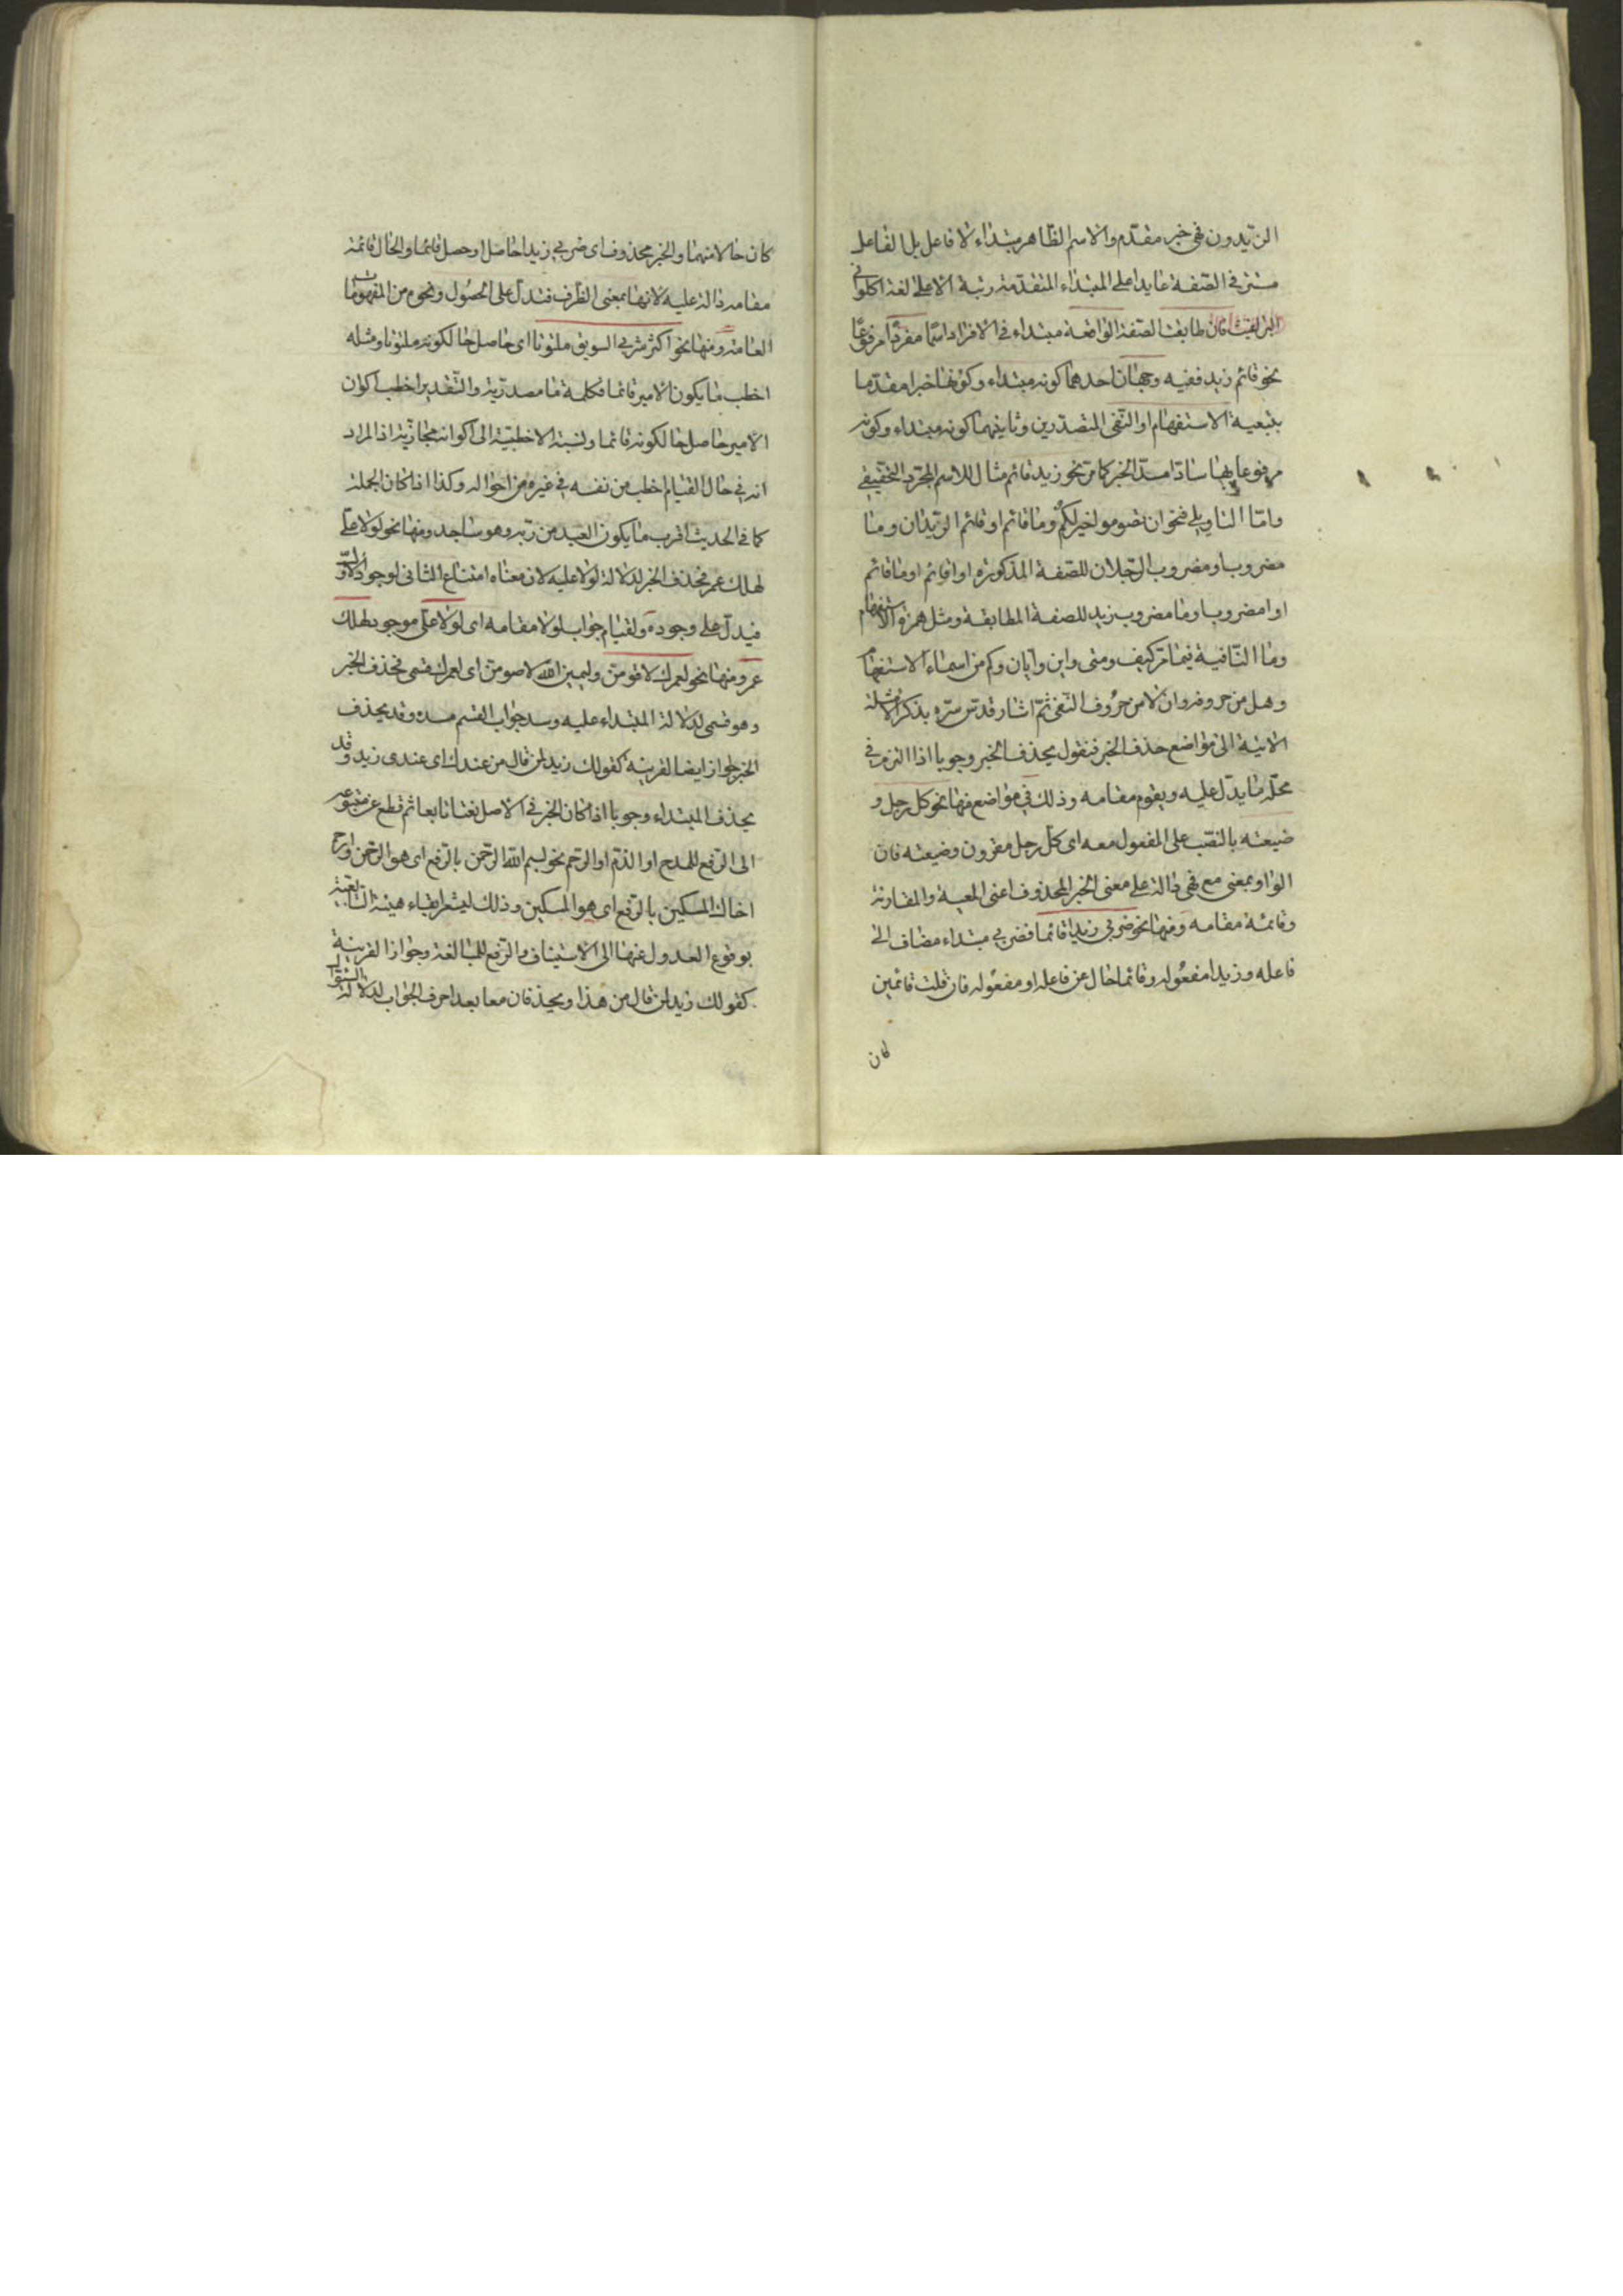 الزيدون فهي خبر مقدم والاسم الظاهر مبتداء لا فاعل بل الفاعل
مستتر فى الصفة عايدا على المبتداء المتقدمة رتبة الا على لغة اكلونى
البراغيث فان طابقت الصفة الواقعة مبتداء فى الافراد اسما مفردا مرفوعا
نحو قائم زيد ففيه وجهان احدهما كونه مبتداء وكونها خبرا مقدما
بتبعية الاستفهام او النفى المتصدرين وثانيهما كونه مبتداء وكونه
مرفوعا بها سادا مسد الخبر كما مر نحو زيد قائم مثال للاسم المجرد التحقيقى
واما التاويلى فنحو ان تصوموا خير لكم وما قائم او قائم الزيدان وما
مضروب او مضروب الرجلان للصفة المذكورة او اقائم او ما قائم
او امضروب او ما مضروب زيد للصفة المطابقة ومثل همزة الاستفهام
وما النافية فيما مر كيف ومتى واين وايان وكم من اسماء الاستفهام
وهل من حروفه وان لا من حروف النفى ثم اشار قدس سره بذكر الامثلة
الاتية الى مواضع حذف الخبر فنقول يحذف الخبر وجوبا اذا التزم فى
محله ما يدل عليه ويقوم مقامه وذلك فى مواضع منها نحو كل رجل و
ضيعته بالنصب على المفعول معه اى كل رجل مقرون وضيعته فان
الواو بمعنى مع فهى دالة على معنى الخبر المحذوف اعنى المعية والمقارنة
وقائمة مقامه ومنها نحو ضربى زيدا قائما فضربى مبتداء مضاف الى
فاعله وزيدا مفعوله وقائما حال عن فاعله او مفعوله فان قلت قائمين
كان
كان حالا منهما والخبر محذوف اى ضربى زيدا حاصل او حصل قائما والحال قائمة
مقامه دالة عليه لانها بمعنى الظرف فتدل على الحصول ونحوه من المفهومات
العامة ومنها نحو اكثر شربى السويق ملتوتا اى حاصل حالكونه ملتوتا ومثله
اخطب ما يكون الامير قائما فكلمة ما مصدرية والتقدير اخطب اكوان
الامير حاصل حالكونه قائما ونسبة الاخطبية الى اكوانه مجازية اذ المراد
انه فى حال القيام اخطب من نفسه فى غيره من احواله وكذا اذا كان الجملة
كما فى الحديث اقرب ما يكون العبد من ربه وهو ساجد ومنها نحو لولا على
لهلك عمر فحذف الخبر لدلالة لولا عليه لان معناه امتناع الثانى لوجود الاول
فيدل على وجوده ولقيام جواب لولا مقامه اى لولا على موجود لهلك
عمر ومنها نحو لعمرك لاقومن وليمين الله لاصومن اى لعمرك قسمى فحذف الخبر
وهو قسمى لدلالة المبتداء عليه وسد جواب القسم مسده وقد يحذف
الخبر جوازا ايضا لقرينة كقولك زيد لمن قال من عندك اى عندى زيد وقد
يحذف المبتداء وجوبا اذا كان الخبر فى الاصل نعتا تابعا ثم قطع عن متبوعه
الى الرفع للمدح او الذم او الترحم نحو بسم الله الرحمن بالرفع اى هو الرحمن وارحم
اخاك المسكين بالرفع اى هو المسكين وذلك ليشعر ابقاء هيئة التابعية
بوقوع العدول عنها الى الاستيناف والرفع للمبالغة وجوازا لقرينة
كقولك زيد لمن قال من هذا ويحذفان معا بعد احرف الجواب لدلالة السؤال